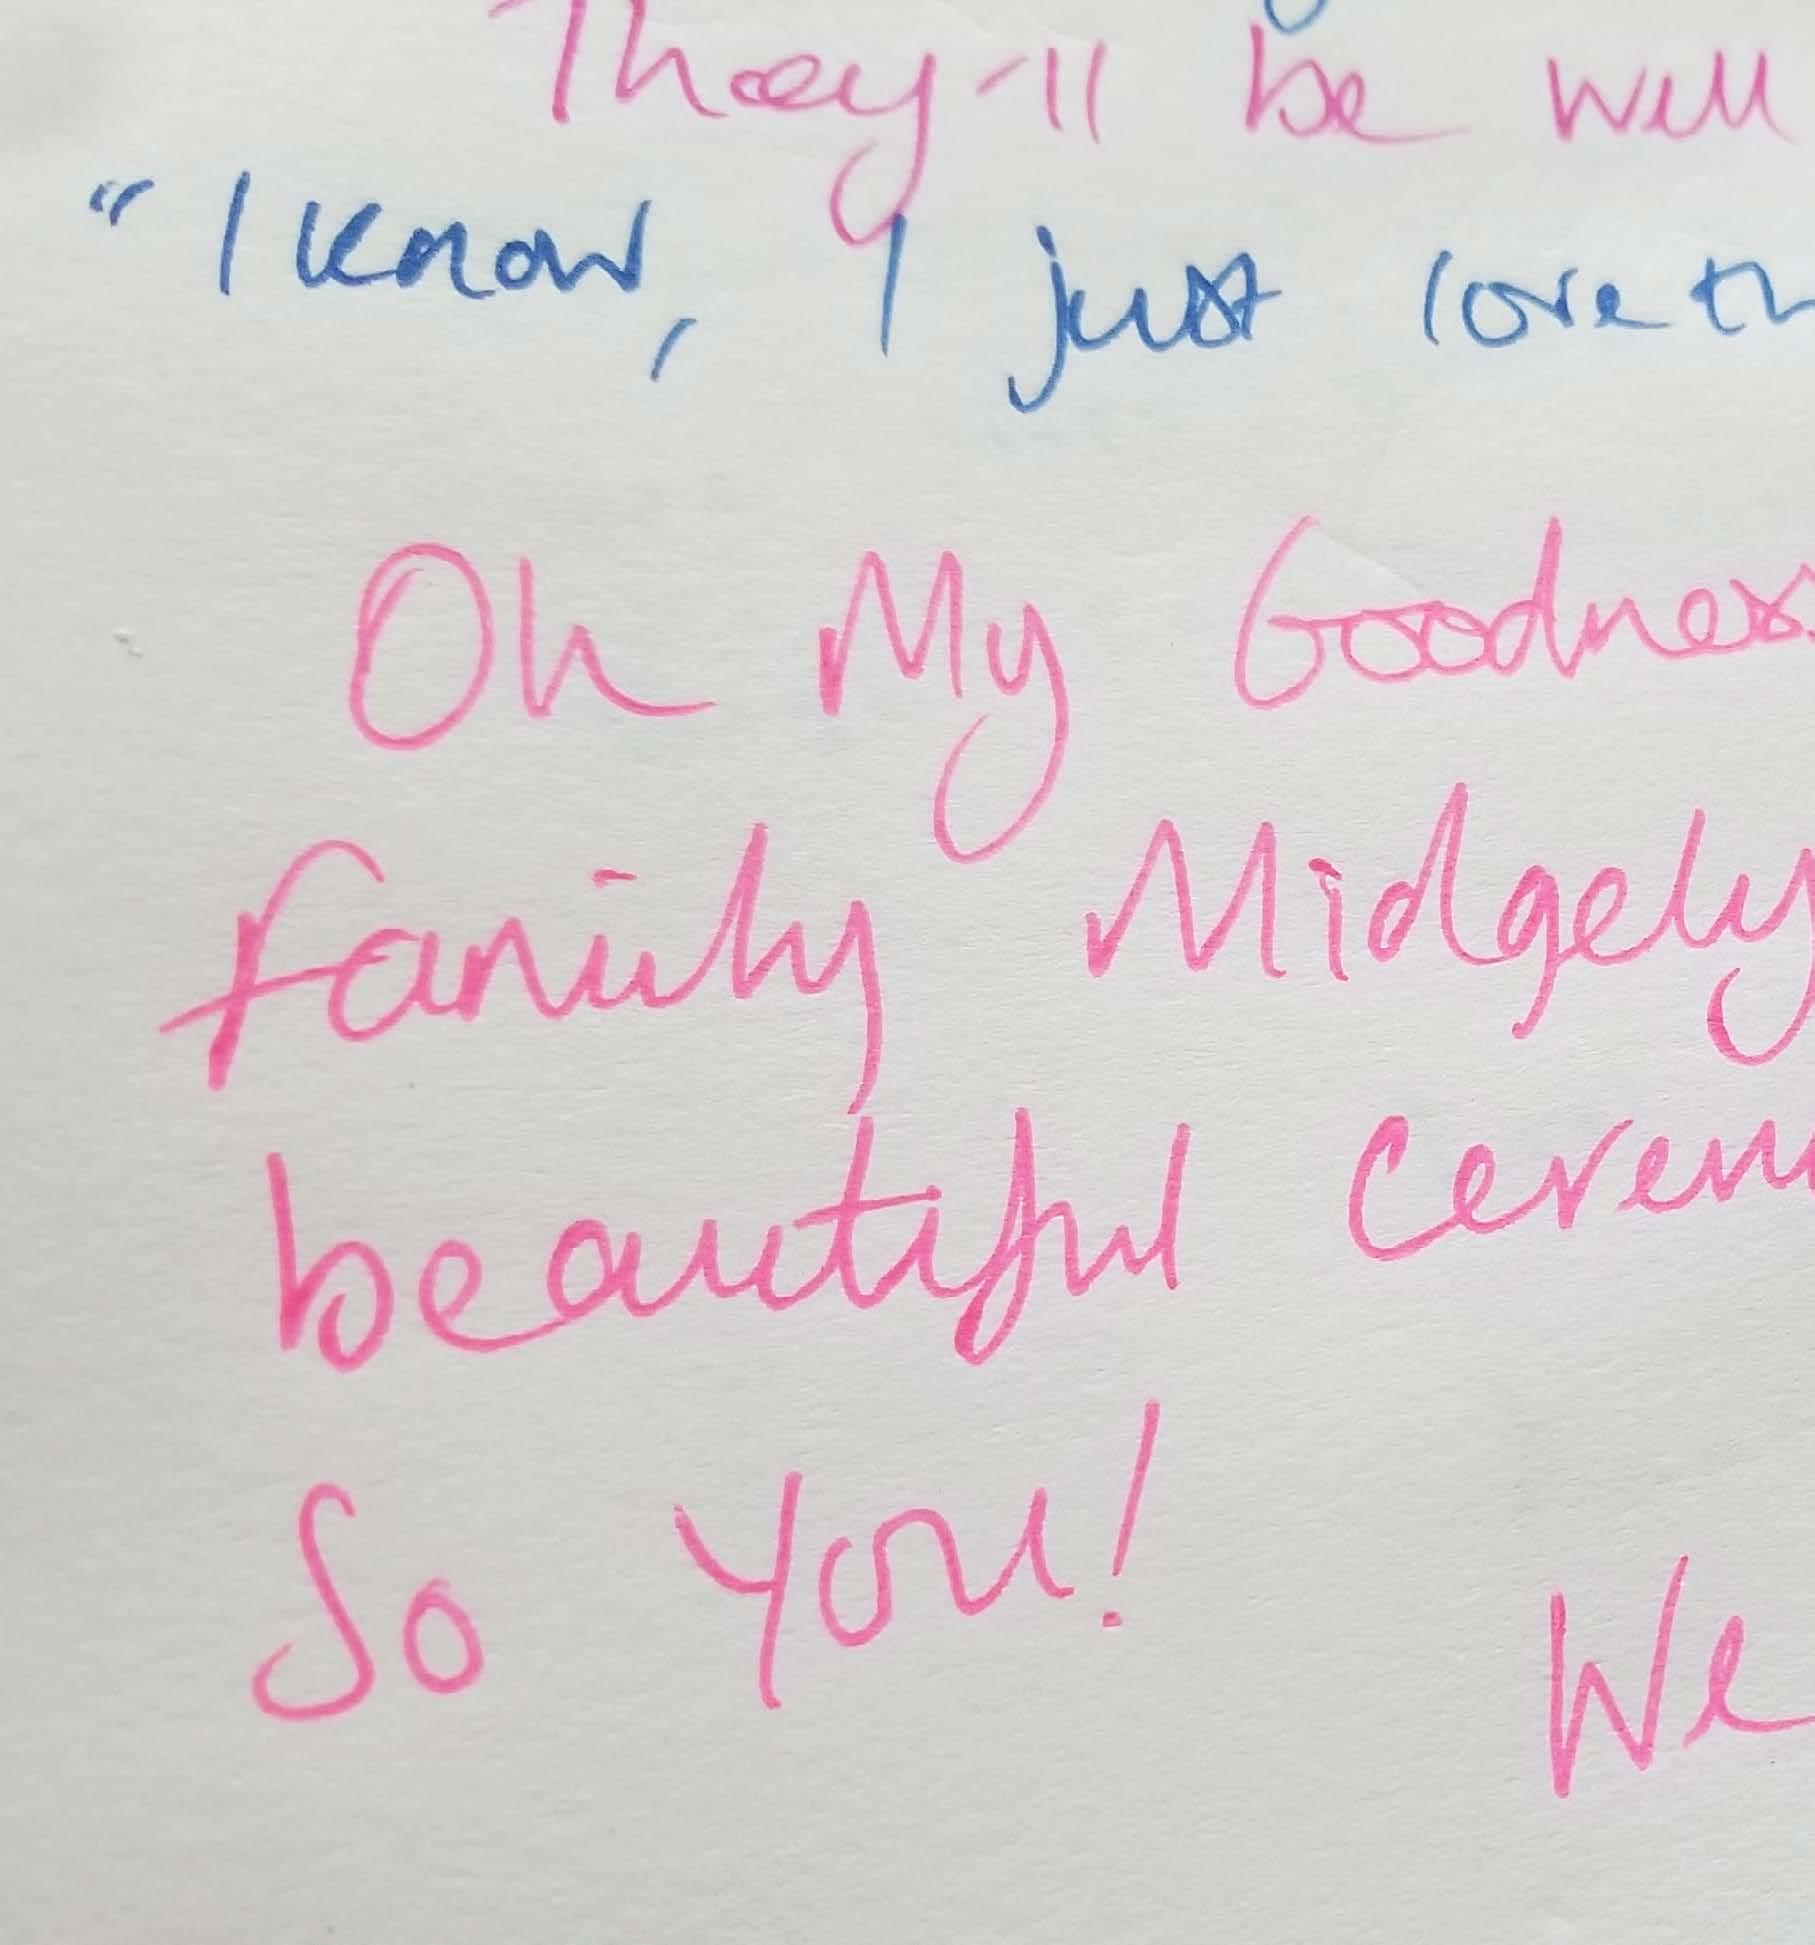 They'll be well
"I know, I just love th
Oh My Goodness
family Midgely
beautiful cerem
So You!
We